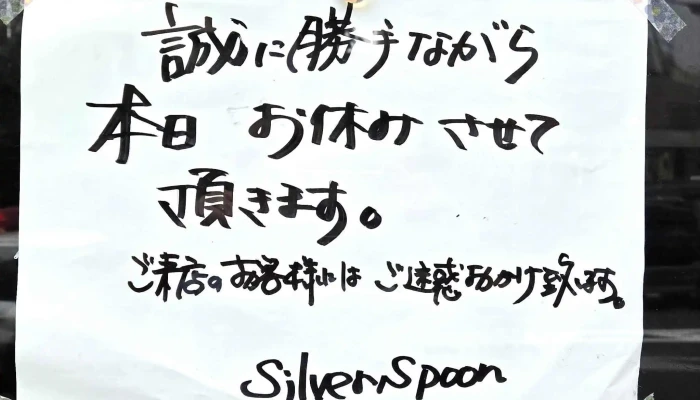 誠に勝手ながら
本日 お休みさせて
頂きます。
ご来店のお客様には ご迷惑おかけ致します。
Silver Spoon